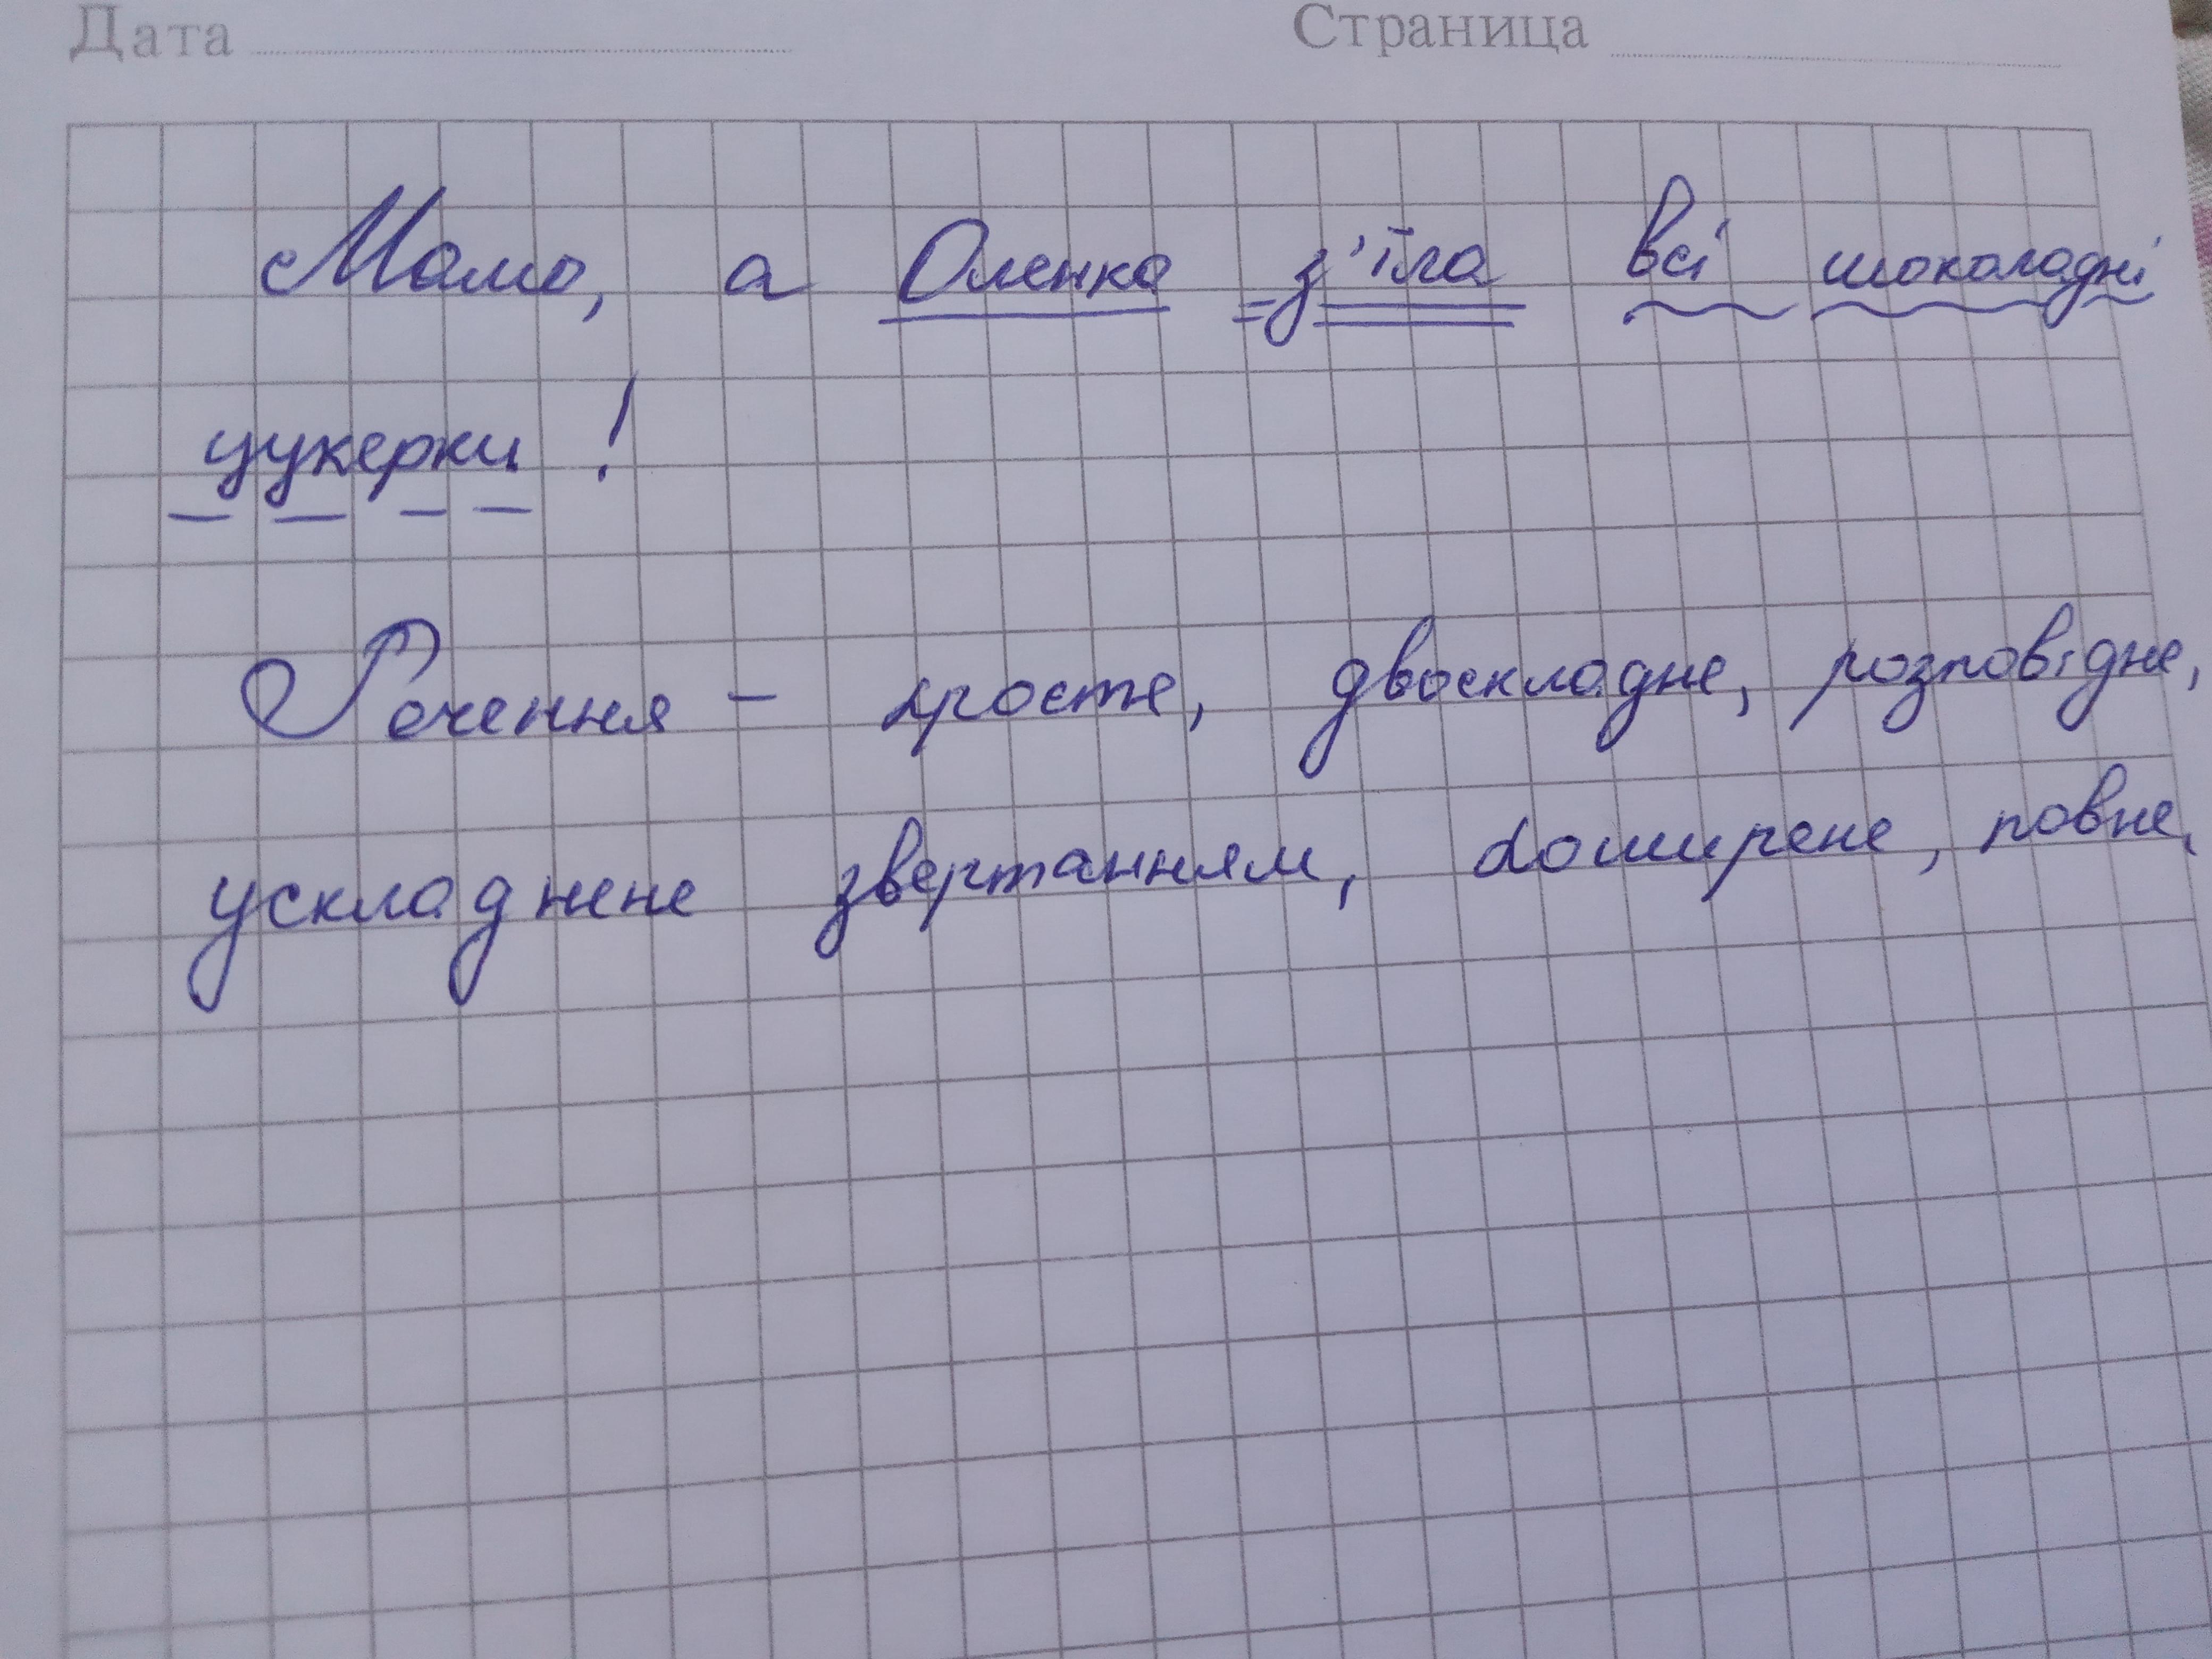 Дата Страница
Мамо, а Оленка з'їла всі шоколадні
цукерки!
Речення – просте, двоскладне, розповідне,
ускладнене звертанням, поширене, повне,